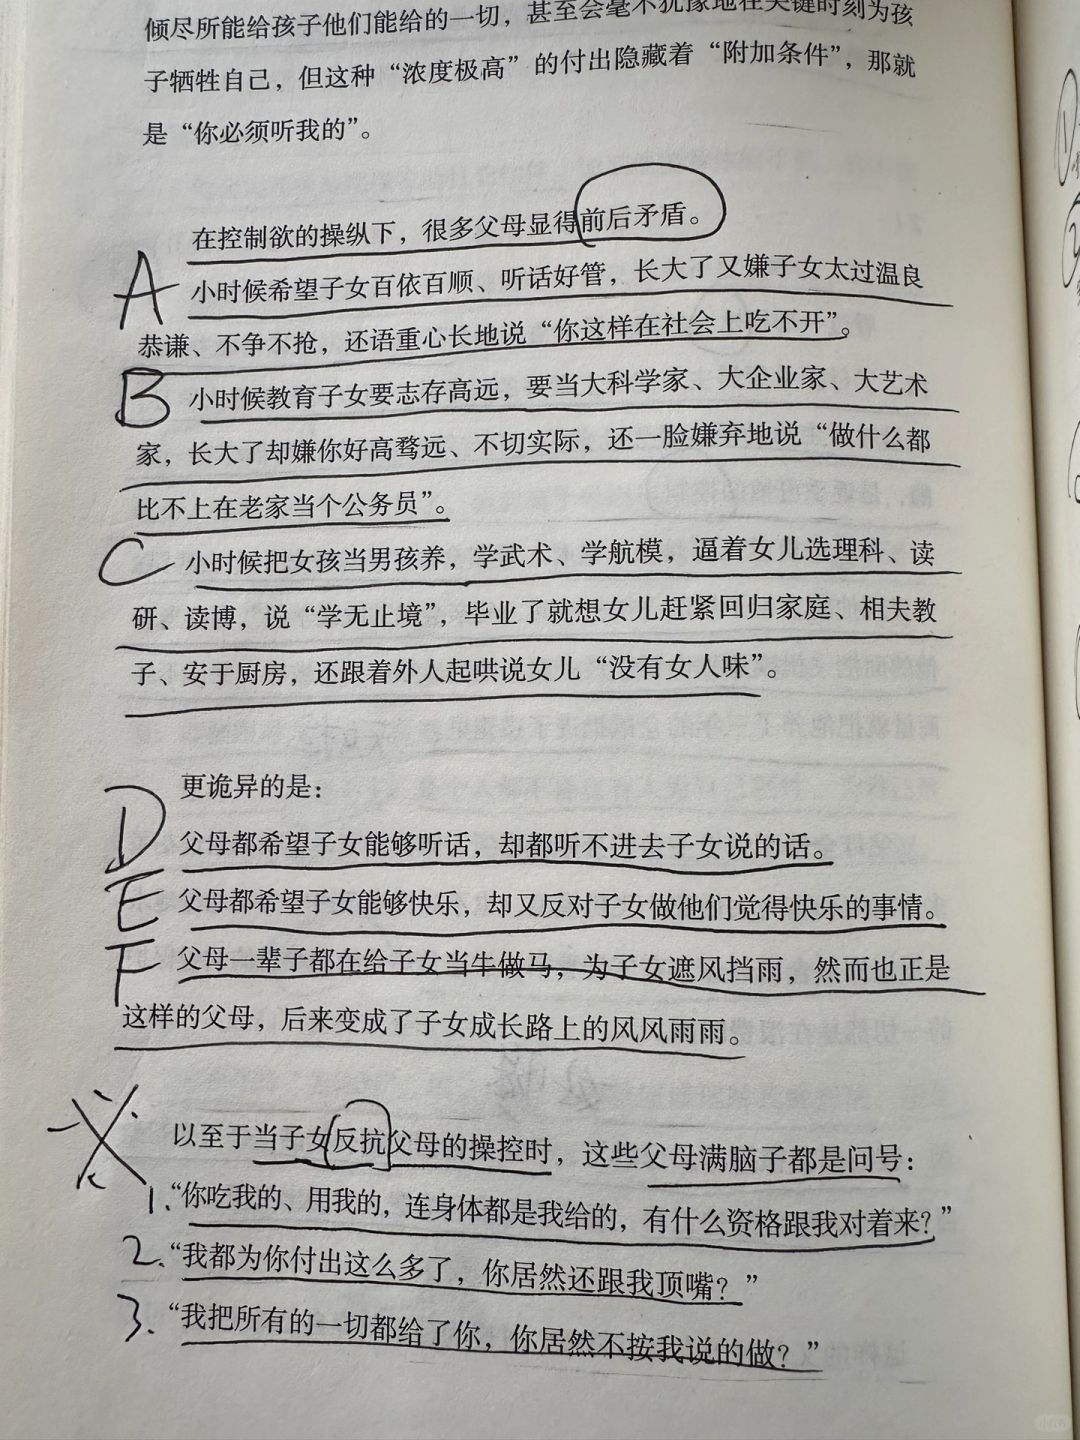 倾尽所能给孩子他们能给的一切，甚至会毫不犹豫地在关键时刻为孩
子牺牲自己，但这种“浓度极高”的付出隐藏着“附加条件”，那就
是“你必须听我的”。
在控制欲的操纵下，很多父母显得前后矛盾。
A 小时候希望子女百依百顺、听话好管，长大了又嫌子女太过温良
恭谦、不争不抢，还语重心长地说“你这样在社会上吃不开”。
B 小时候教育子女要志存高远，要当大科学家、大企业家、大艺术
家，长大了却嫌你好高骛远、不切实际，还一脸嫌弃地说“做什么都
比不上在老家当个公务员”。
C 小时候把女孩当男孩养，学武术、学航模，逼着女儿选理科、读
研、读博，说“学无止境”，毕业了就想女儿赶紧回归家庭、相夫教
子、安于厨房，还跟着外人起哄说女儿“没有女人味”。
更诡异的是：
D 父母都希望子女能够听话，却都听不进去子女说的话。
E 父母都希望子女能够快乐，却又反对子女做他们觉得快乐的事情。
F 父母一辈子都在给子女当牛做马，为子女遮风挡雨，然而也正是
这样的父母，后来变成了子女成长路上的风风雨雨。
以至于当子女反抗父母的操控时，这些父母满脑子都是问号：
1.“你吃我的、用我的，连身体都是我给的，有什么资格跟我对着来？”
2.“我都为你付出这么多了，你居然还跟我顶嘴？”
3.“我把所有的一切都给了你，你居然不按我说的做？”